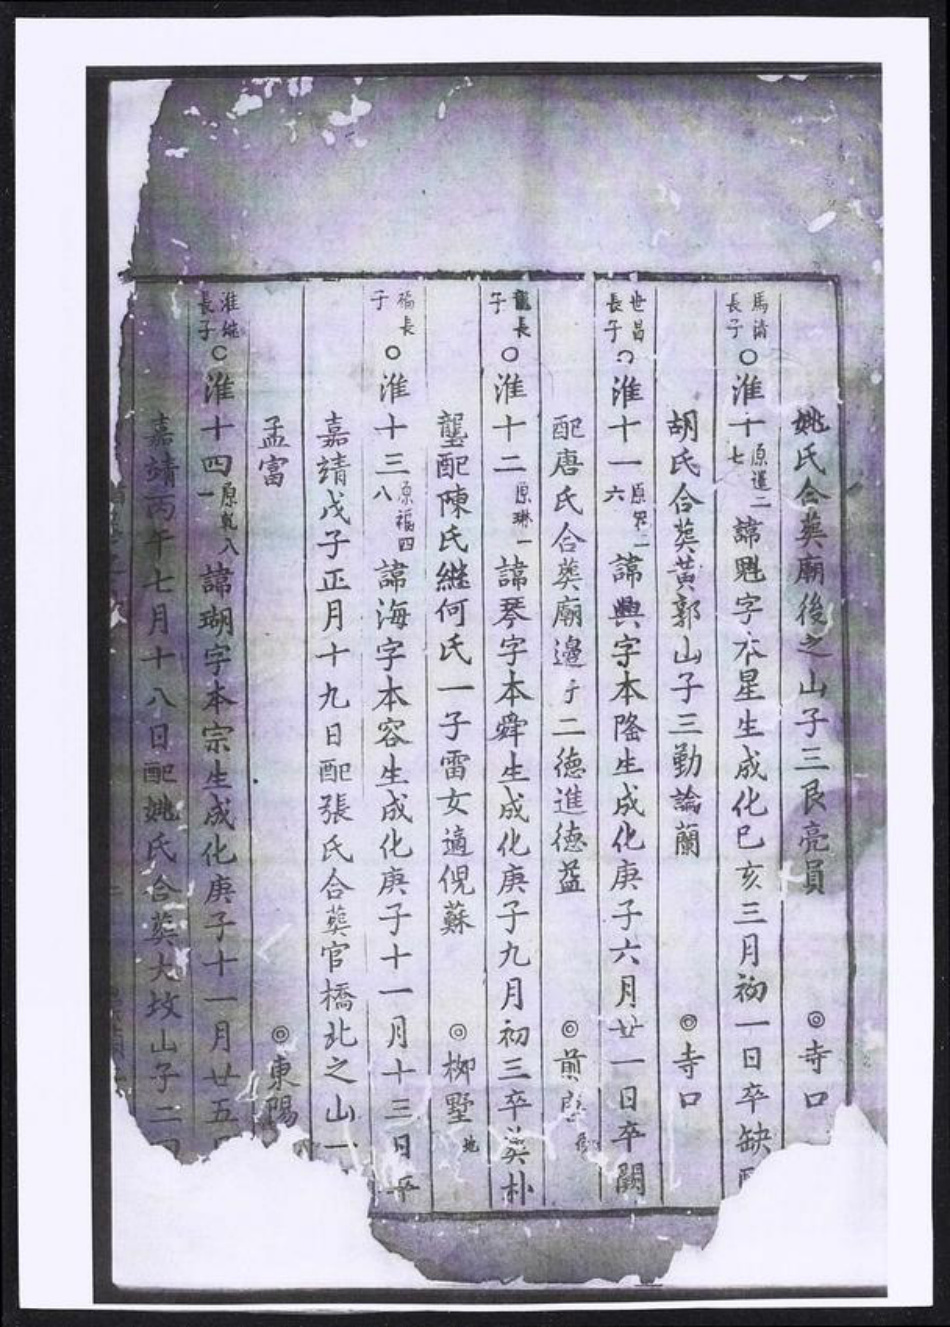 姚氏合葬廟後之山子三良亮員 ◎寺口
長子 ○淮十七 諱魁字本星生成化己亥三月初一日卒缺配
胡氏合葬黃郭山子三勤論蘭 ◎寺口
世昌長子 ○淮十一 六 諱興字本隆生成化庚子六月廿一日卒闕
配唐氏合葬廟邊子二德進德益 ◎前
龍長子 ○淮十二 原琳一 諱琴字本舜生成化庚子九月初三卒葬朴
壟配陳氏繼何氏一子雷女適倪蘇 ◎柳墅
福長子 ○淮十三 八 原福四 諱海字本容生成化庚子十一月十三日卒
嘉靖戊子正月十九日配張氏合葬官橋北之山一
孟富 ◎東陽
長子 ○淮十四 一 原乾八 諱瑚字本宗生成化庚子十一月廿五
嘉靖丙午七月十八日配姚氏合葬大坟山子二